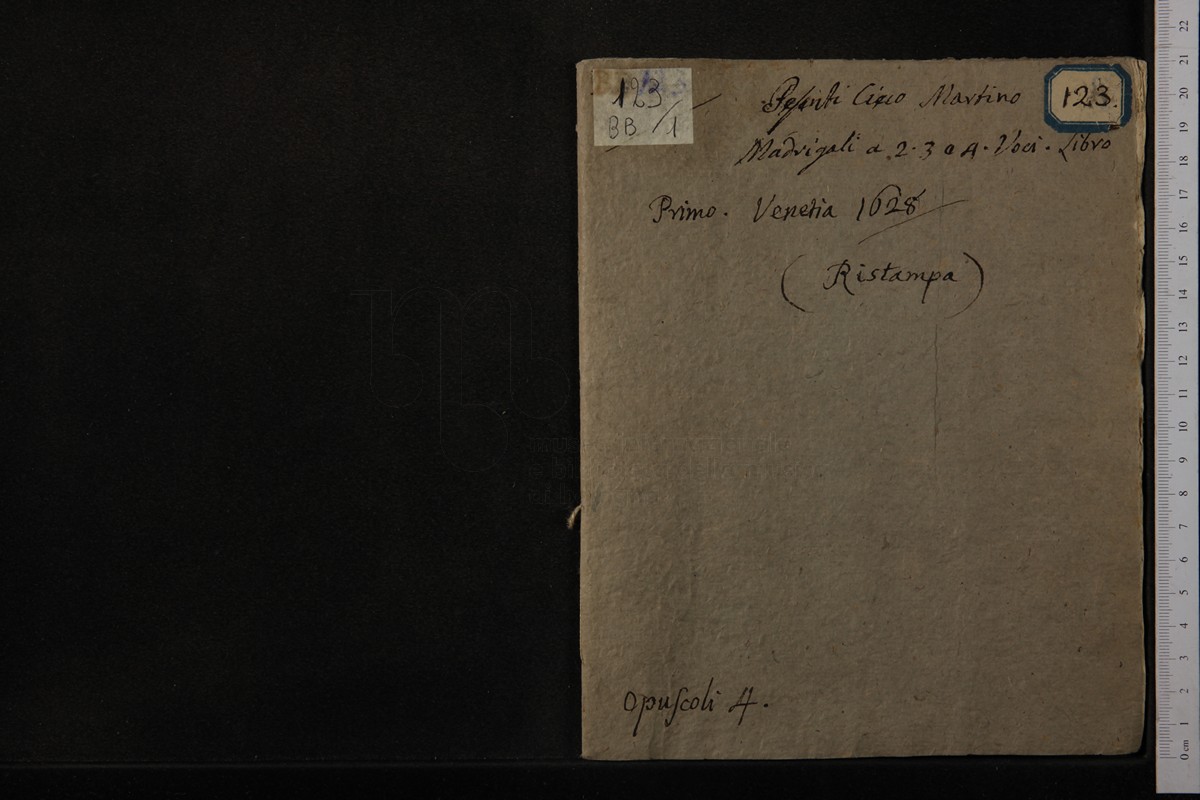 123
BB / 1
Pesenti Cieco Martino
123.
Madrigali a 2. 3 e 4. Voci. Libro
Primo. Venetia 1628
(Ristampa)
Opuscoli 4.
22
21
20
19
18
17
16
15
14
13
12
11
10
9
8
7
6
5
4
3
2
1
0 cm